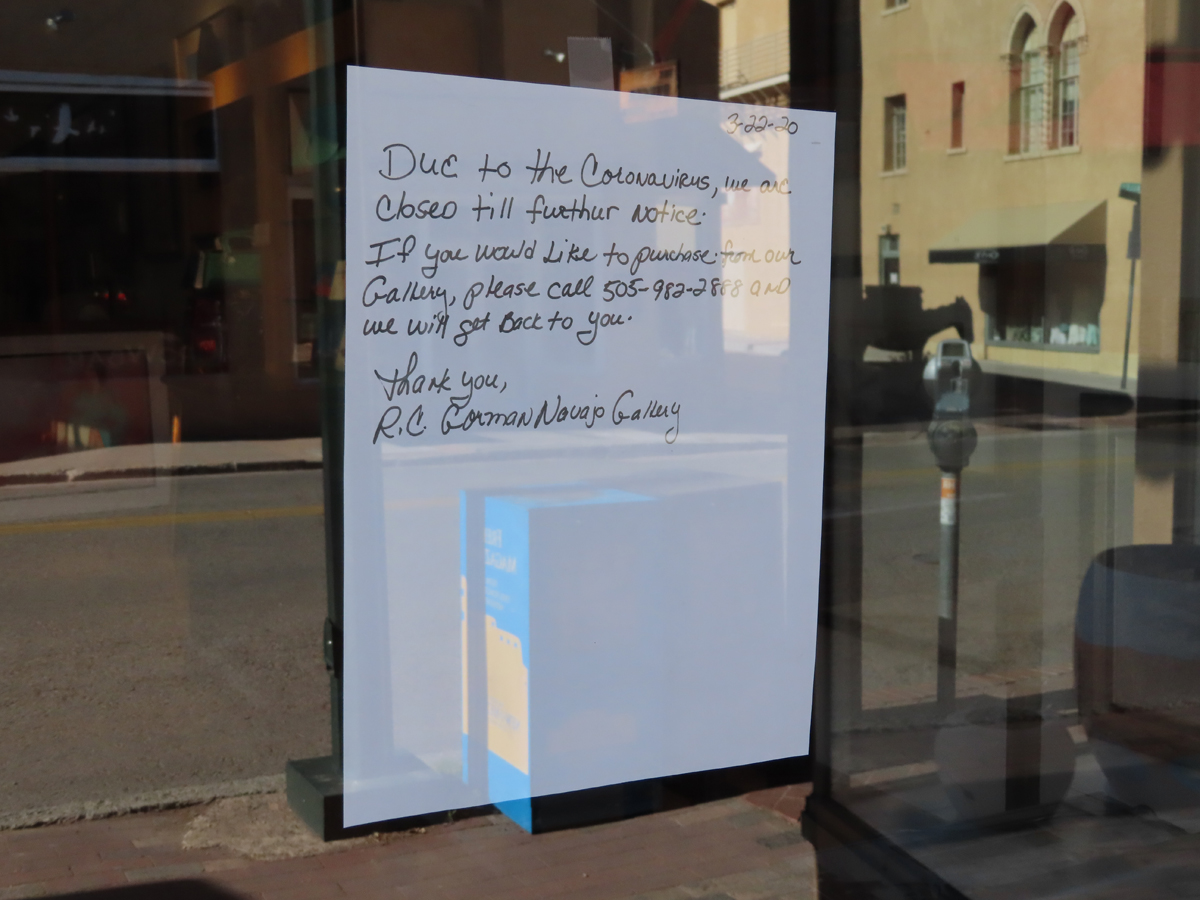 3-22-20
Due to the Coronavirus, we are
closed till furthur notice.
If you would Like to purchase from our
Gallery, please call 505-982-2888 and
we will get Back to you.
Thank you,
R.C. Gorman Navajo Gallery